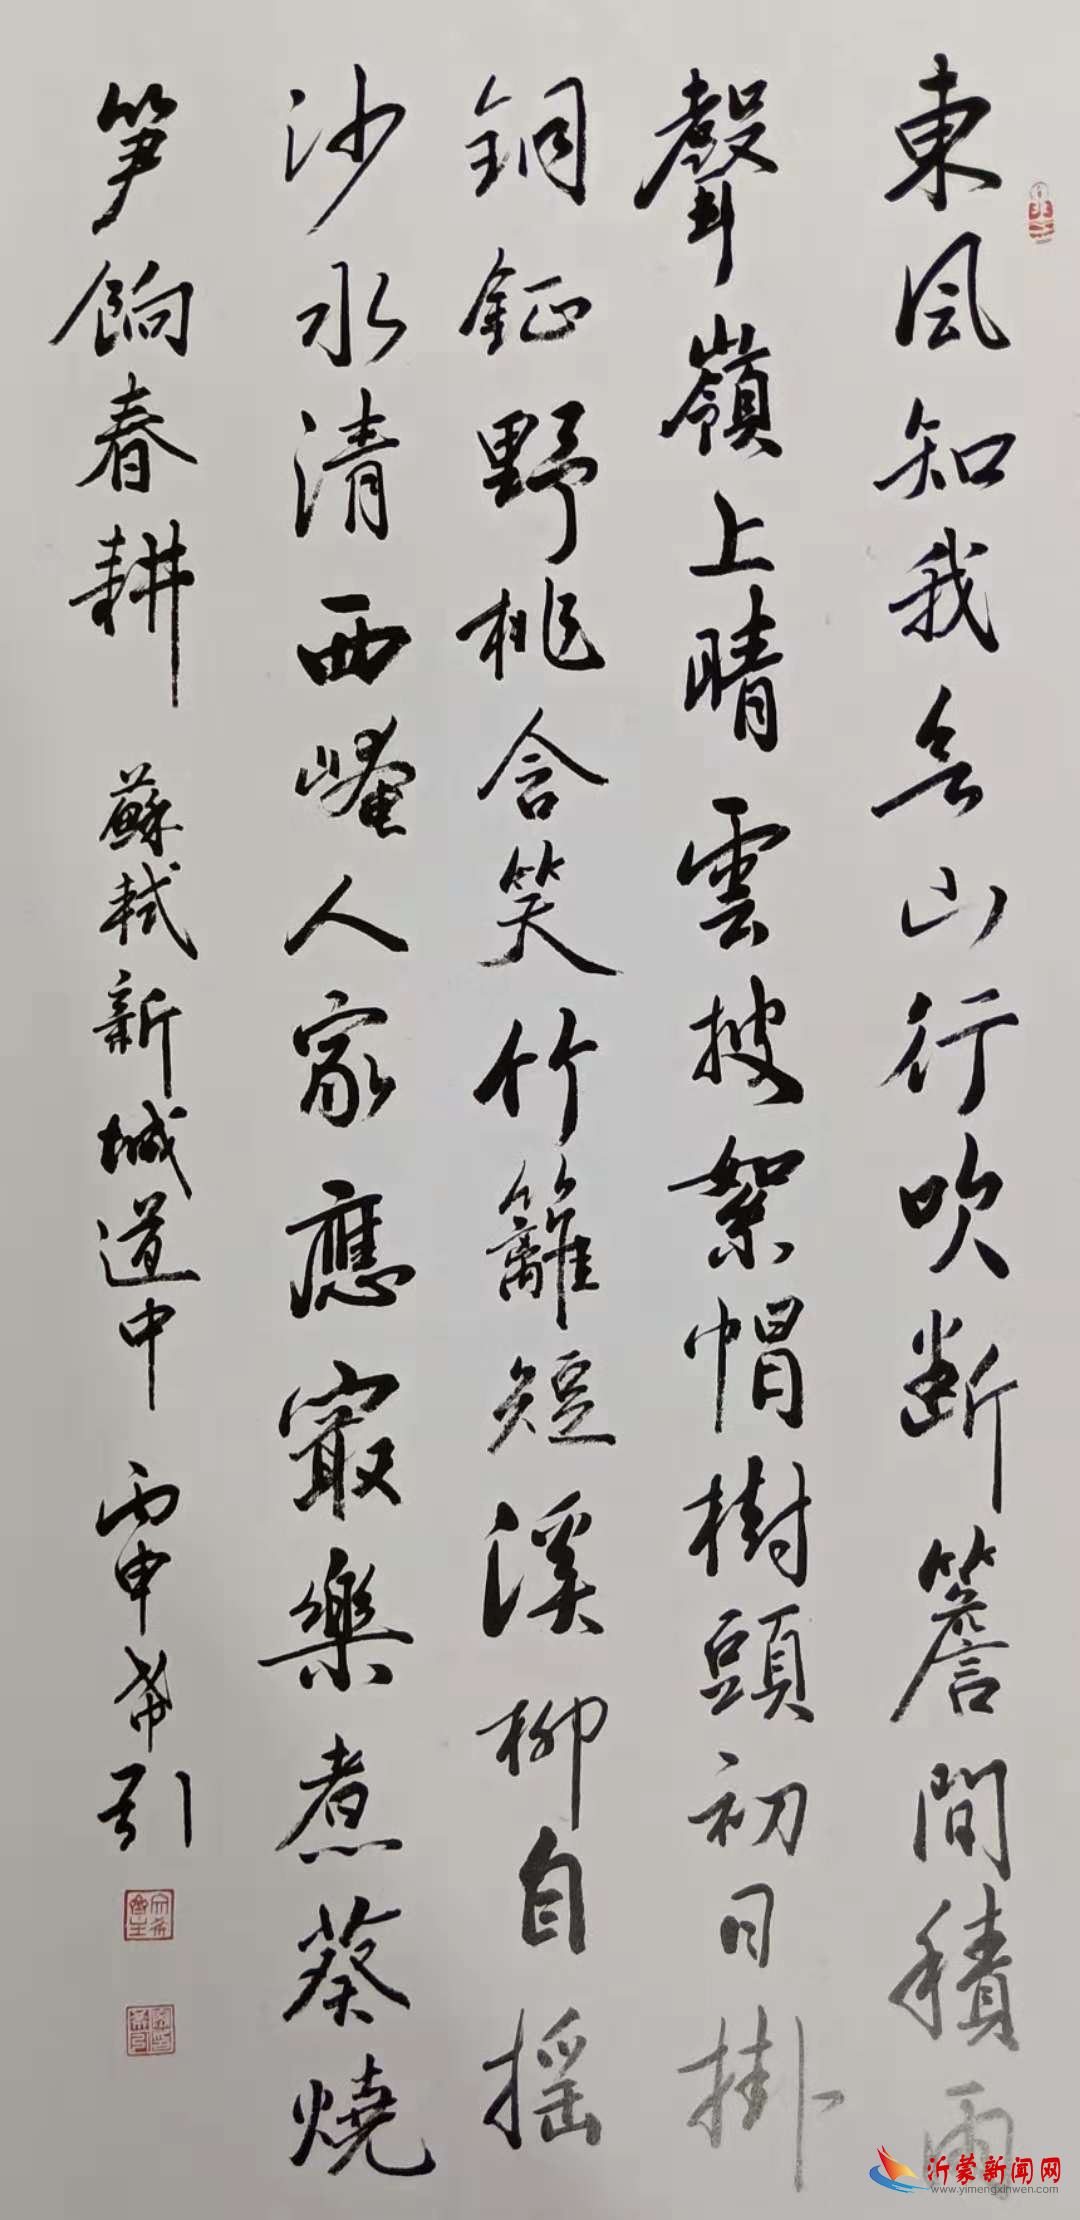 東风知我欲山行吹断簷間積雨
聲嶺上晴雲披絮帽樹頭初日掛
銅鉦野桃含笑竹籬短溪柳自摇
沙水清西崦人家應㝡樂煮葵燒
笋餉春耕 蘇軾新城道中 丙申希引
沂蒙新闻网
www.yimengxinwen.com